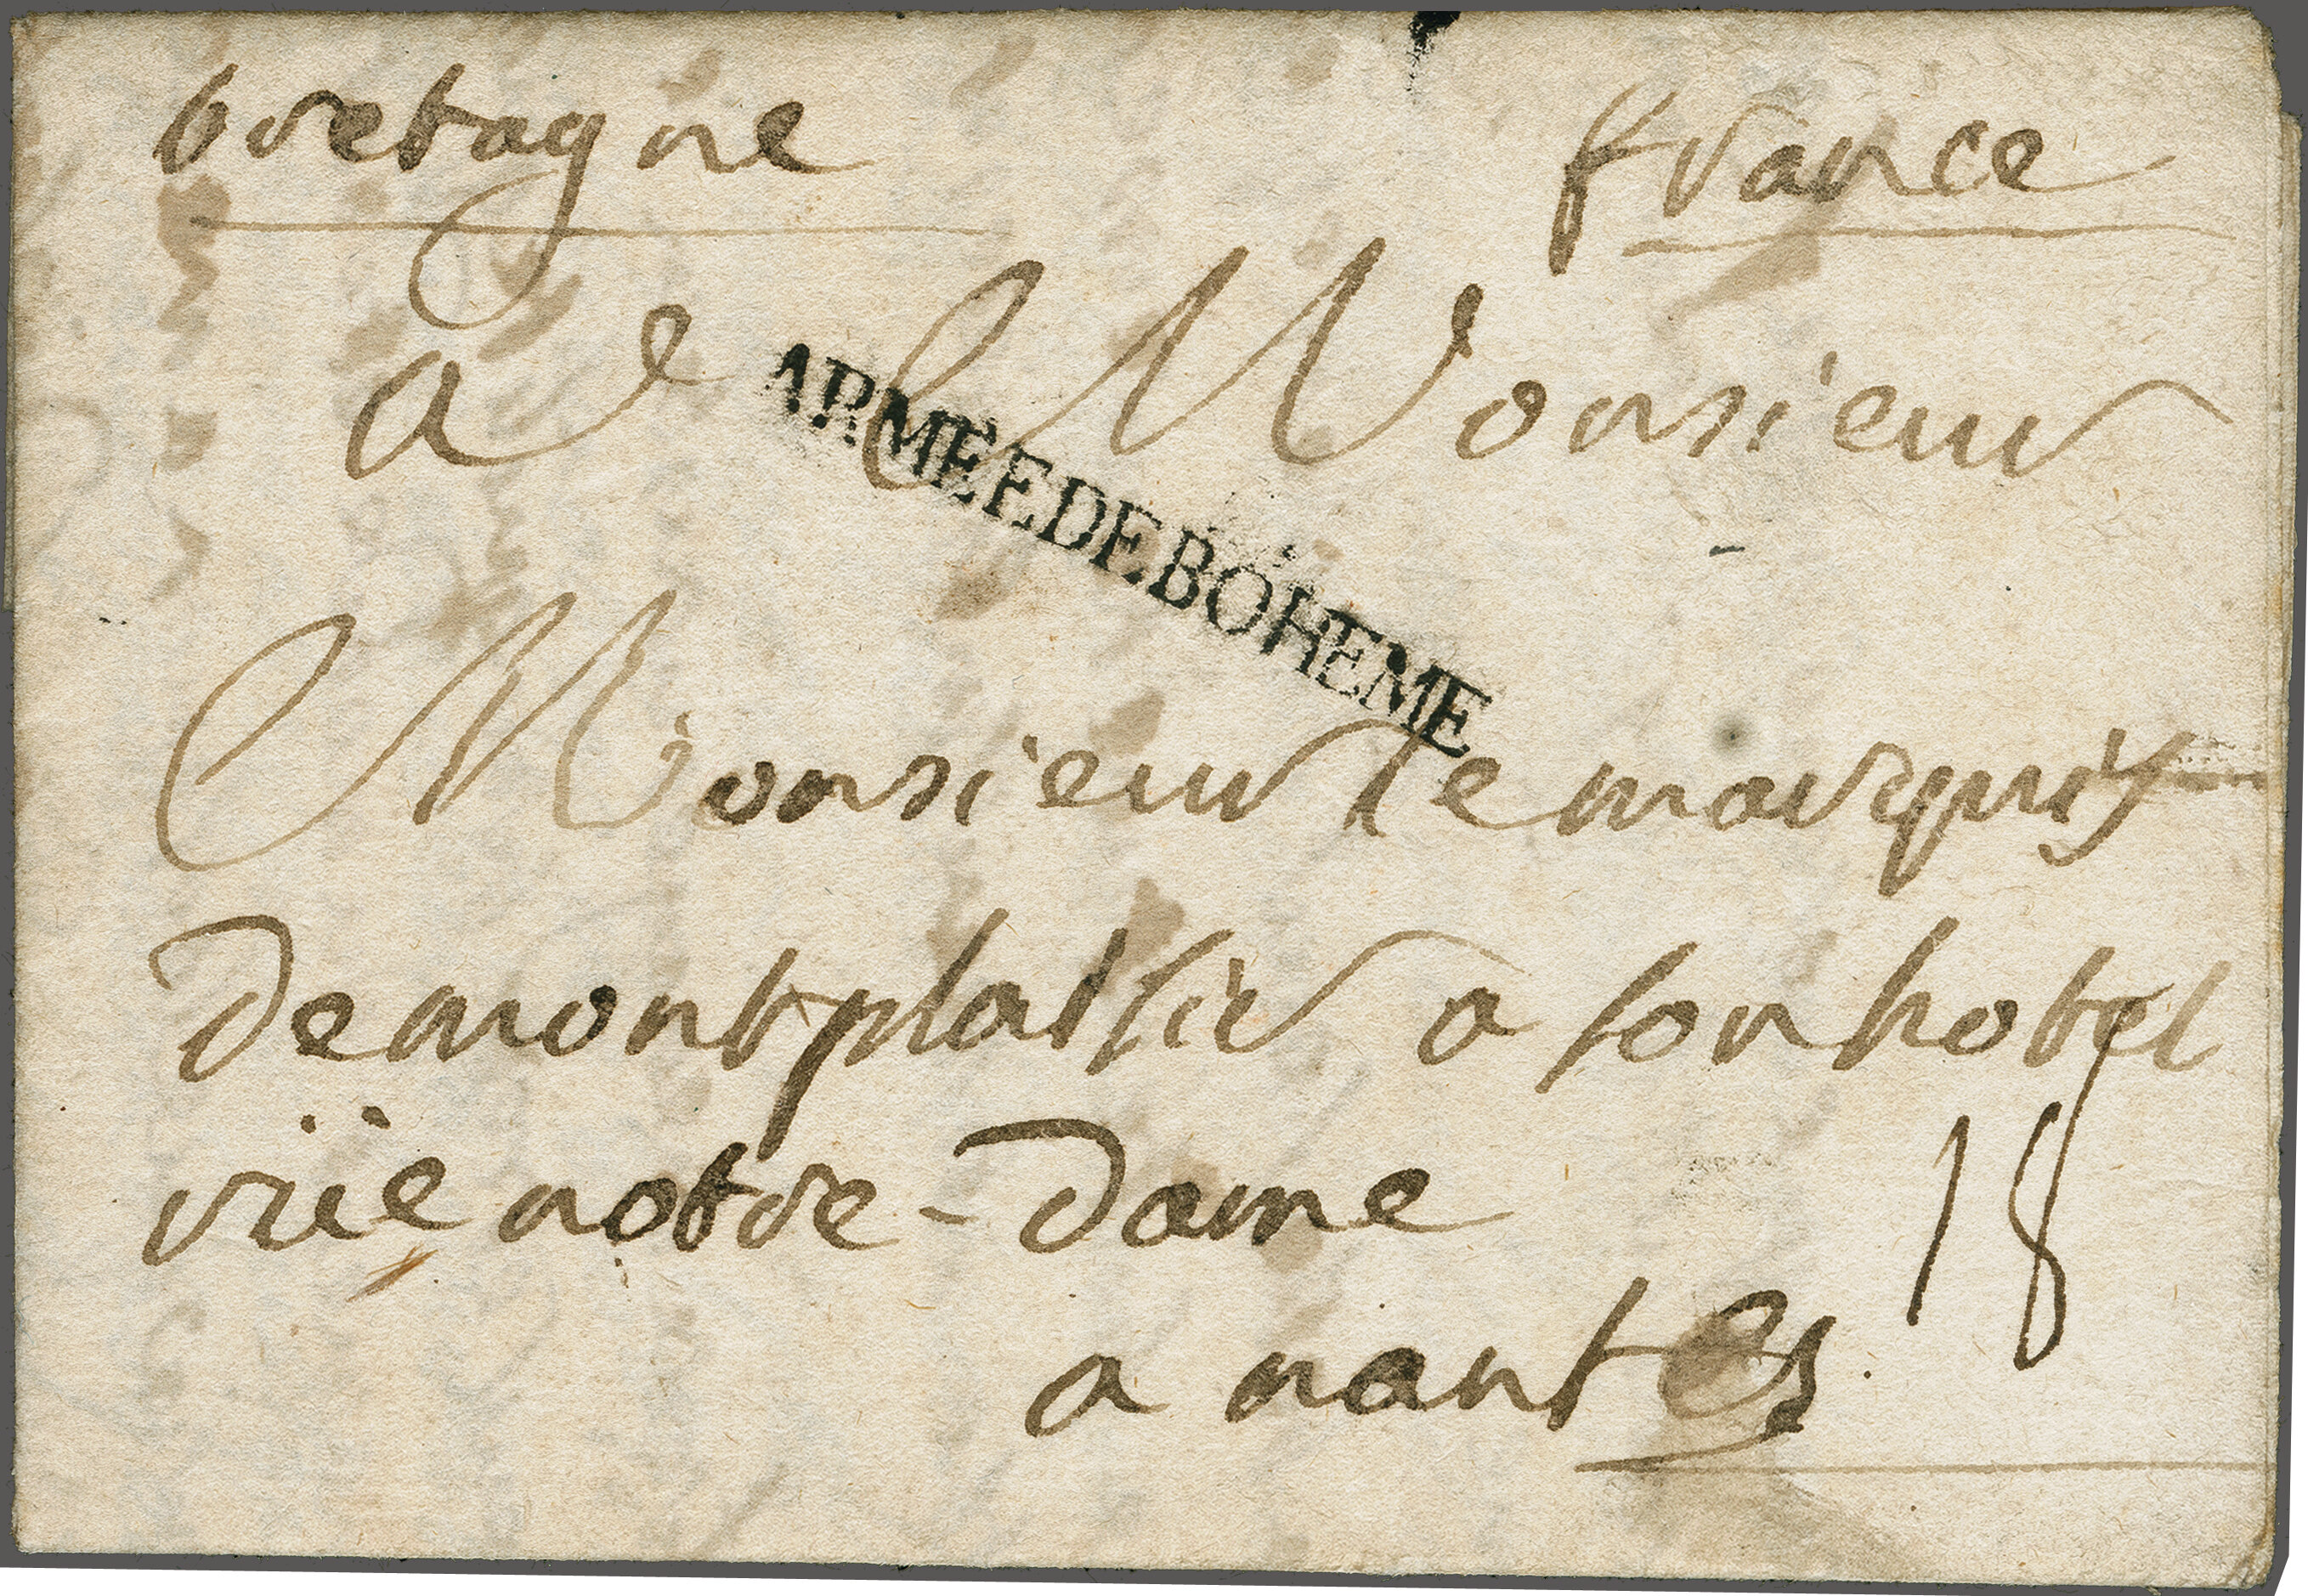 bretagne france
a Monsieur
ARMEE DE BOHEME
Monsieur le marquis
de montplassir a son hotel
rüe notre-dame
18
a nantes